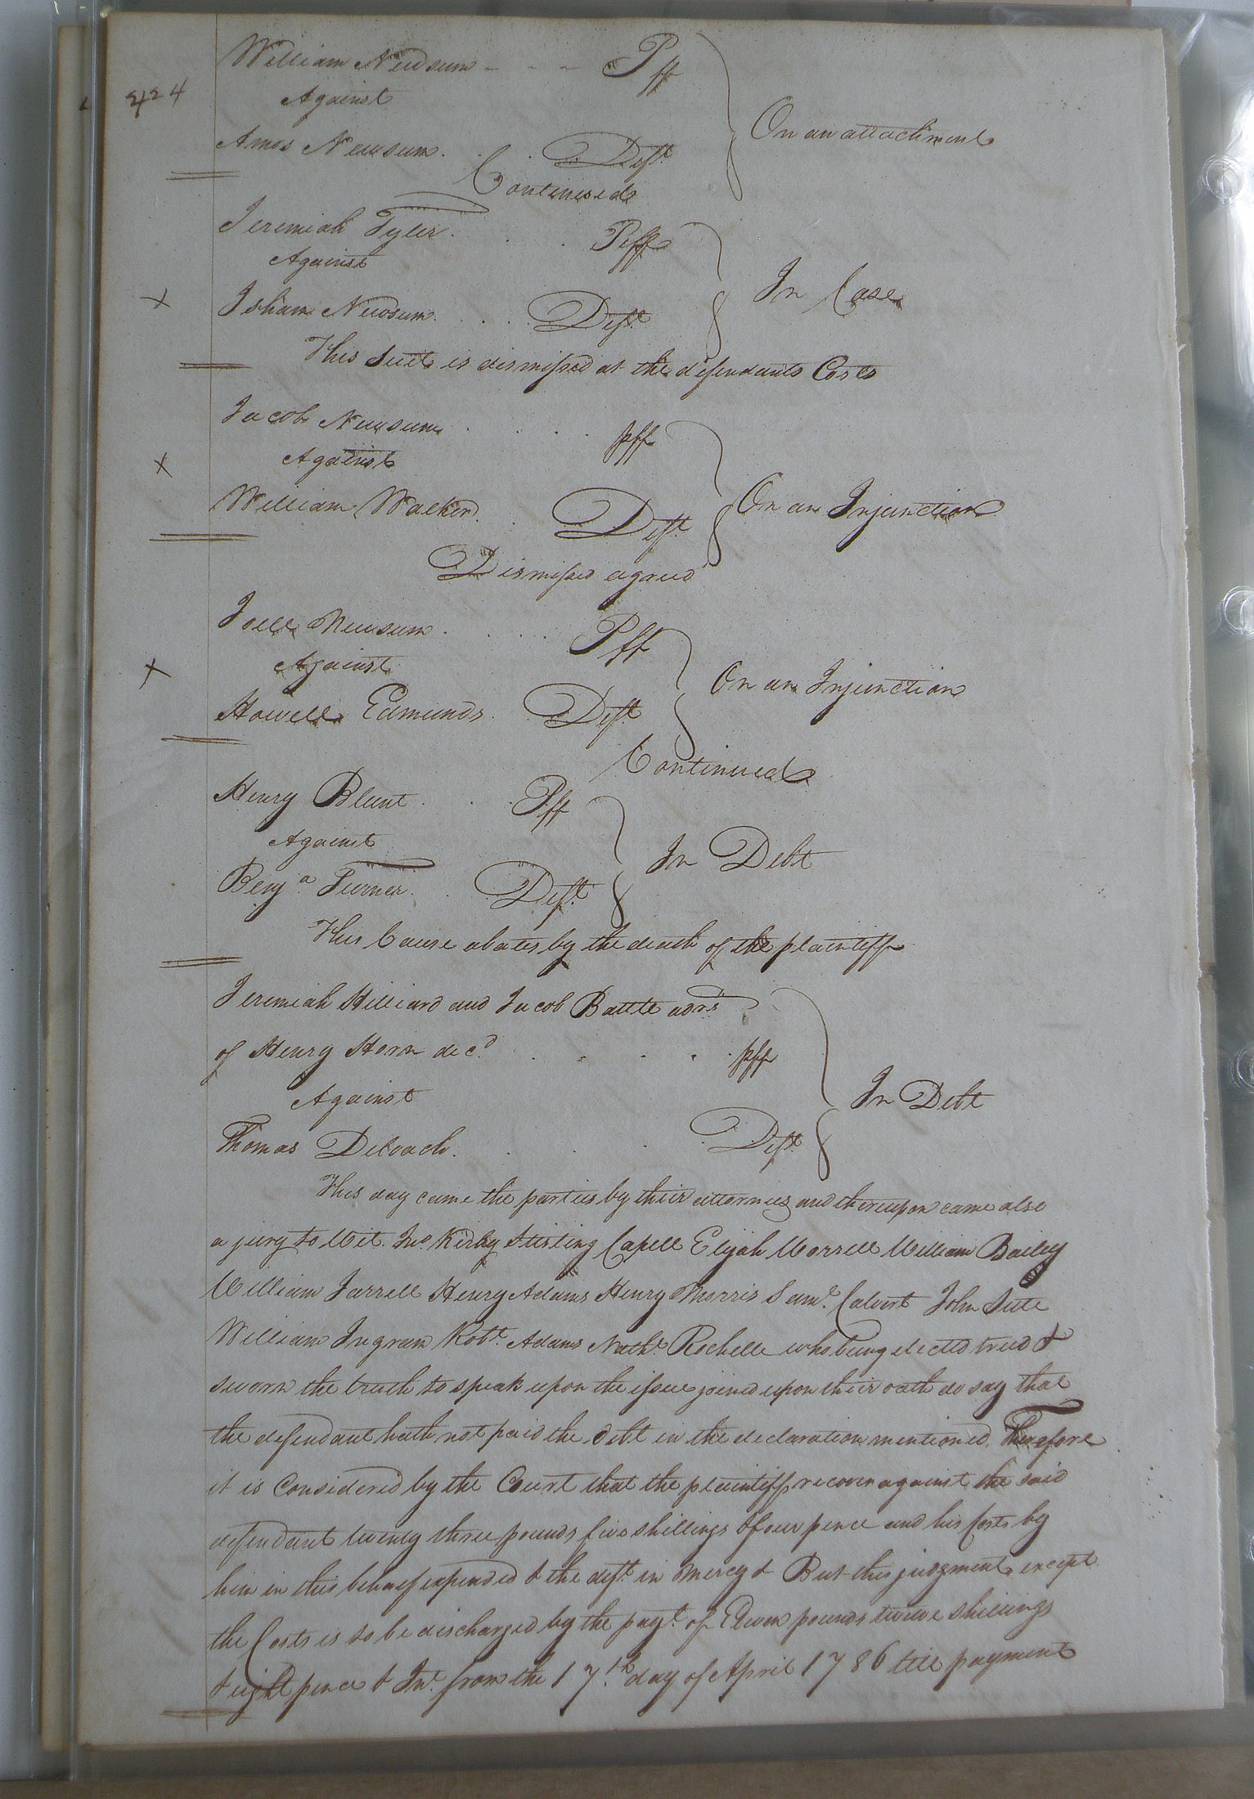 424
William Newsum - - - Pff
Against
On an attachment
Amos Newsum. . . Deft
Continued
Jeremiah Tyler. . . Pff
Against
In Case
X
Isham Newsum. . . Deft
This Suit is dismissed at the defendants Costs
Jacob Newsum . . . pff
Against
X
William Walker. . Deft
On an Injunction
Dismissed agreed
Joell Newsum . . . . Pff
Against
X
On an Injunction
Howell Edmunds. Deft
Continued
Henry Blunt . . . Pff
Against
In Debt
Benja Turner . . Deft
This Cause abates by the death of the plaintiff
Jeremiah Hilliard and Jacob Battle adrs
of Henry Horn decd . . . . . pff
Against
In Debt
Thomas Deloach. . . Deft
This day came the parties by their attornies and thereupon came also
a jury to Wit. Jno Kirby Sterling Capell Elijah Worrell William Bailey
William Jarrell Henry Adams Henry Morris Saml. Calvert John
William Ingram Robt. Adams Nathl Rochelle who being elected tried &
sworn the truth to speak upon the issue joined upon their oath do say that
the defendant hath not paid the debt in the declaration mentioned. Therefore
it is Considered by the Court that the plaintiff recover against the said
defendant twenty three pounds five shillings & four pence and his Costs by
him in this behalf expended & the deft. in mercy & But this judgment except
the Costs is to be discharged by the payt. of Eleven pounds twelve shillings
& eight pence & Int. from the 17th. day of April 1786 till payment